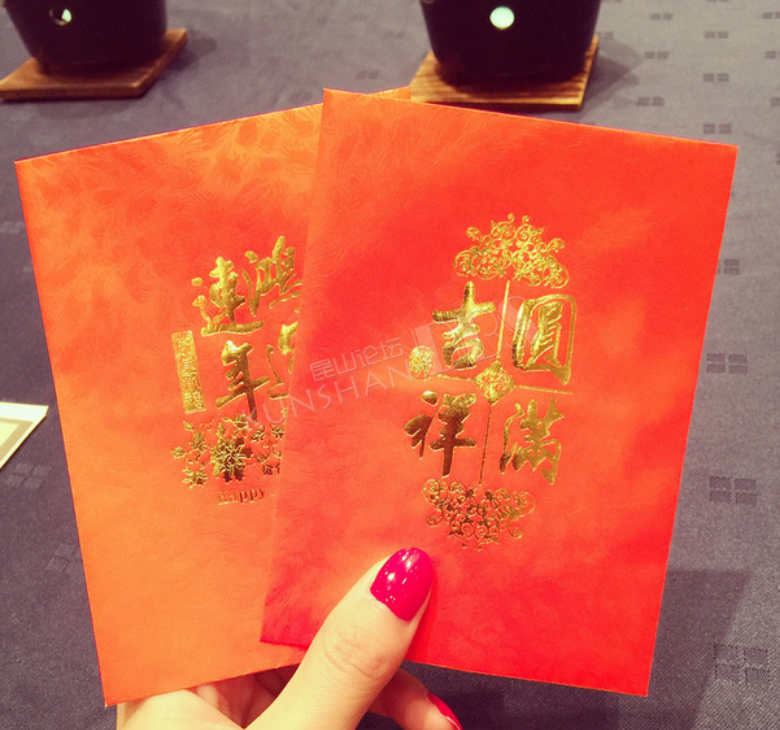 鴻
連年
Happy
圓滿
吉祥
昆山论坛
KUNSHAN